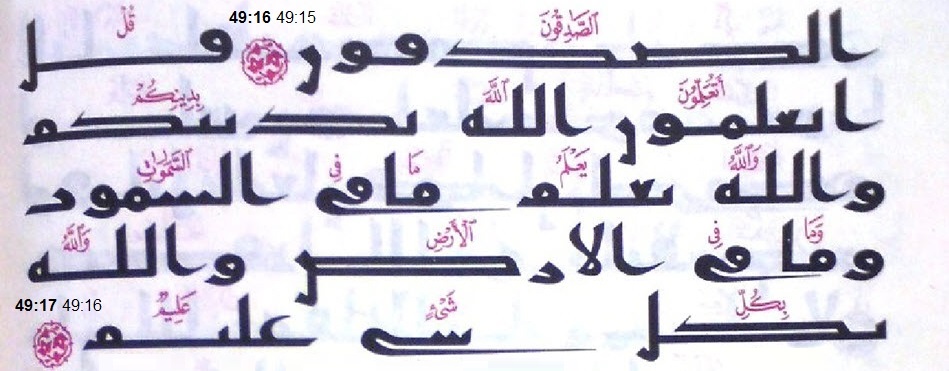 49:16 49:15
ٱلصَّٰدِقُونَ قُلْ
الصدقون قل
أَتُعَلِّمُونَ ٱللَّهَ بِدِينِكُمْ
اتعلمون الله بدينكم
وَٱللَّهُ يَعْلَمُ مَا فِى ٱلسَّمَٰوَٰتِ
والله يعلم ما فى السموت
وَمَا فِى ٱلْأَرْضِ وَٱللَّهُ
وما فى الارض والله
49:17 49:16
بِكُلِّ شَىْءٍ عَلِيمٌ
بكل شى عليم